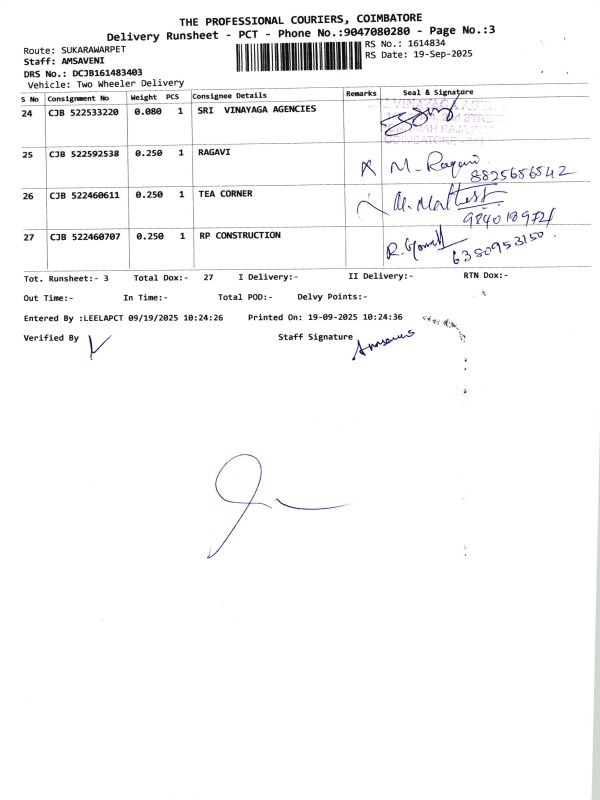 THE PROFESSIONAL COURIERS, COIMBATORE
Delivery Runsheet - PCT - Phone No.:9047080280 - Page No.:3
Route: SUKARAWARPET
RS No.: 1614834
Staff: AMSAVENI
RS Date: 19-Sep-2025
DRS No.: DCJB161483403
Vehicle: Two Wheeler Delivery
S No Consignment No Weight PCS Consignee Details Remarks Seal & Signature
24 CJB 522533220 0.080 1 SRI VINAYAGA AGENCIES
25 CJB 522592538 0.250 1 RAGAVI M. Ragavi
8825686542
26 CJB 522460611 0.250 1 TEA CORNER
9840189721
27 CJB 522460707 0.250 1 RP CONSTRUCTION
6380953150
Tot. Runsheet:- 3 Total Dox:- 27 I Delivery:- II Delivery:- RTN Dox:-
Out Time:- In Time:- Total POD:- Delvy Points:-
Entered By :LEELAPCT 09/19/2025 10:24:26 Printed On: 19-09-2025 10:24:36
Verified By Staff Signature